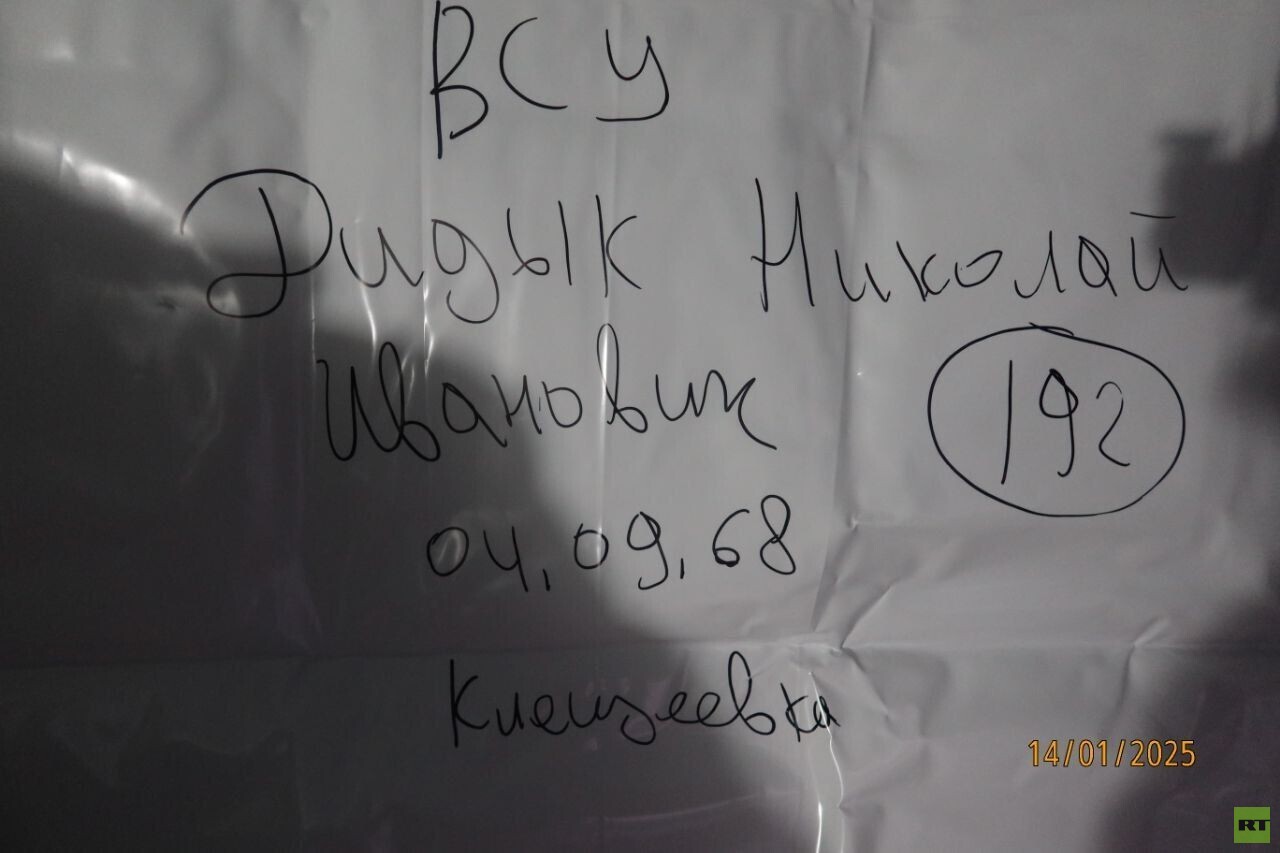 ВСУ
Дидык Николай
Иванович
192
04.09.68
Клещеевка
14/01/2025
RT